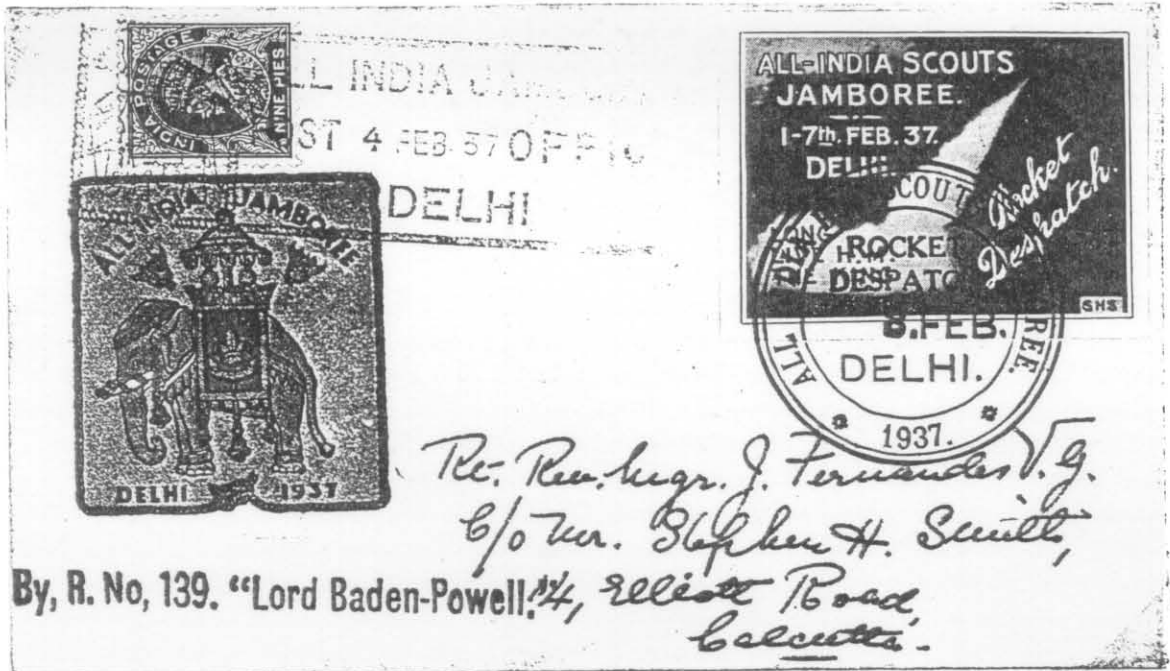 INDIA POSTAGE
NINE PIES
ALL INDIA
ST 4 FEB 37 OFFIC
DELHI
ALL INDIA JAMBOREE
DELHI 1937
ALL-INDIA SCOUTS
JAMBOREE.
1-7th. FEB. 37.
DELHI.
Rocket
Despatch.
GHS
ROCKET
DESPATC
FEB.
DELHI.
1937.
Rt. Rev. Mgr. J. Fernandes V.G.
C/o Mr. Stephen H. Smith,
Elliott Road,
Calcutta.
By, R. No, 139. "Lord Baden-Powell."